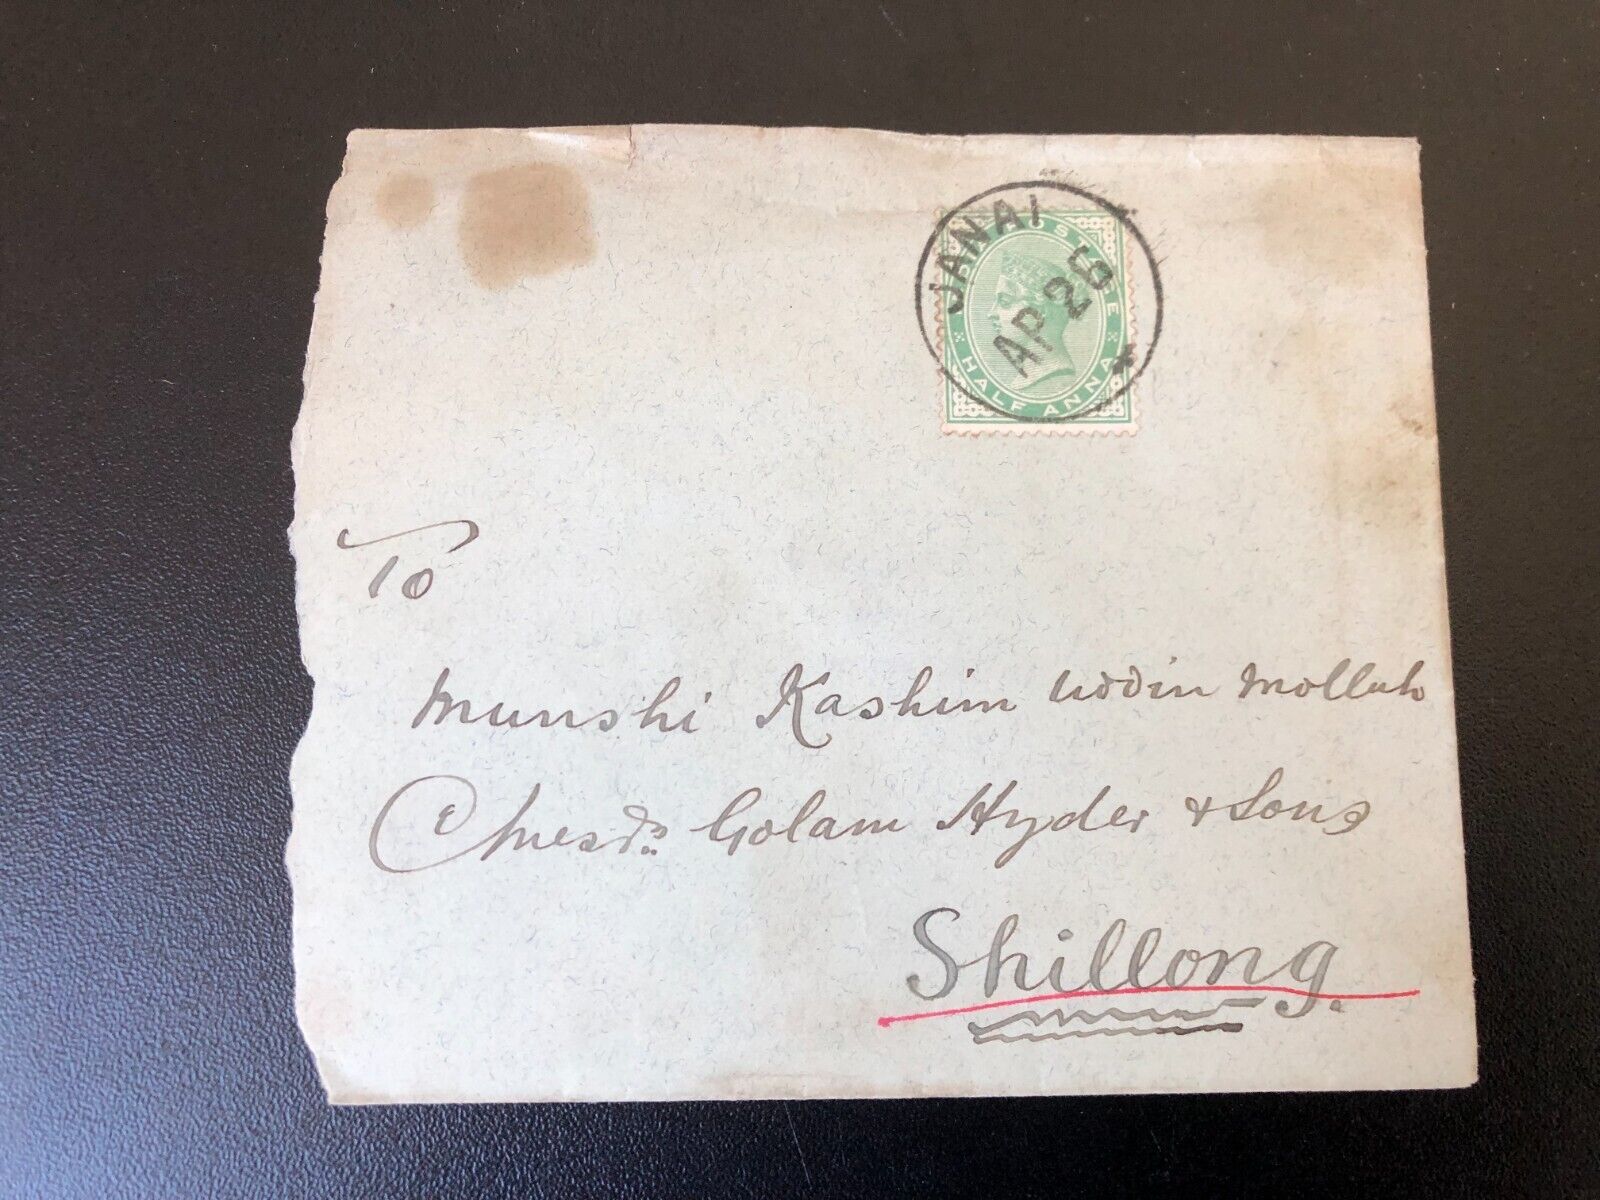 JANAI
AP 25
POSTAGE
HALF ANNA
To
Munshi Kashim Uddin Mollah
C/o Messrs Golam Hyder & Sons
Shillong.